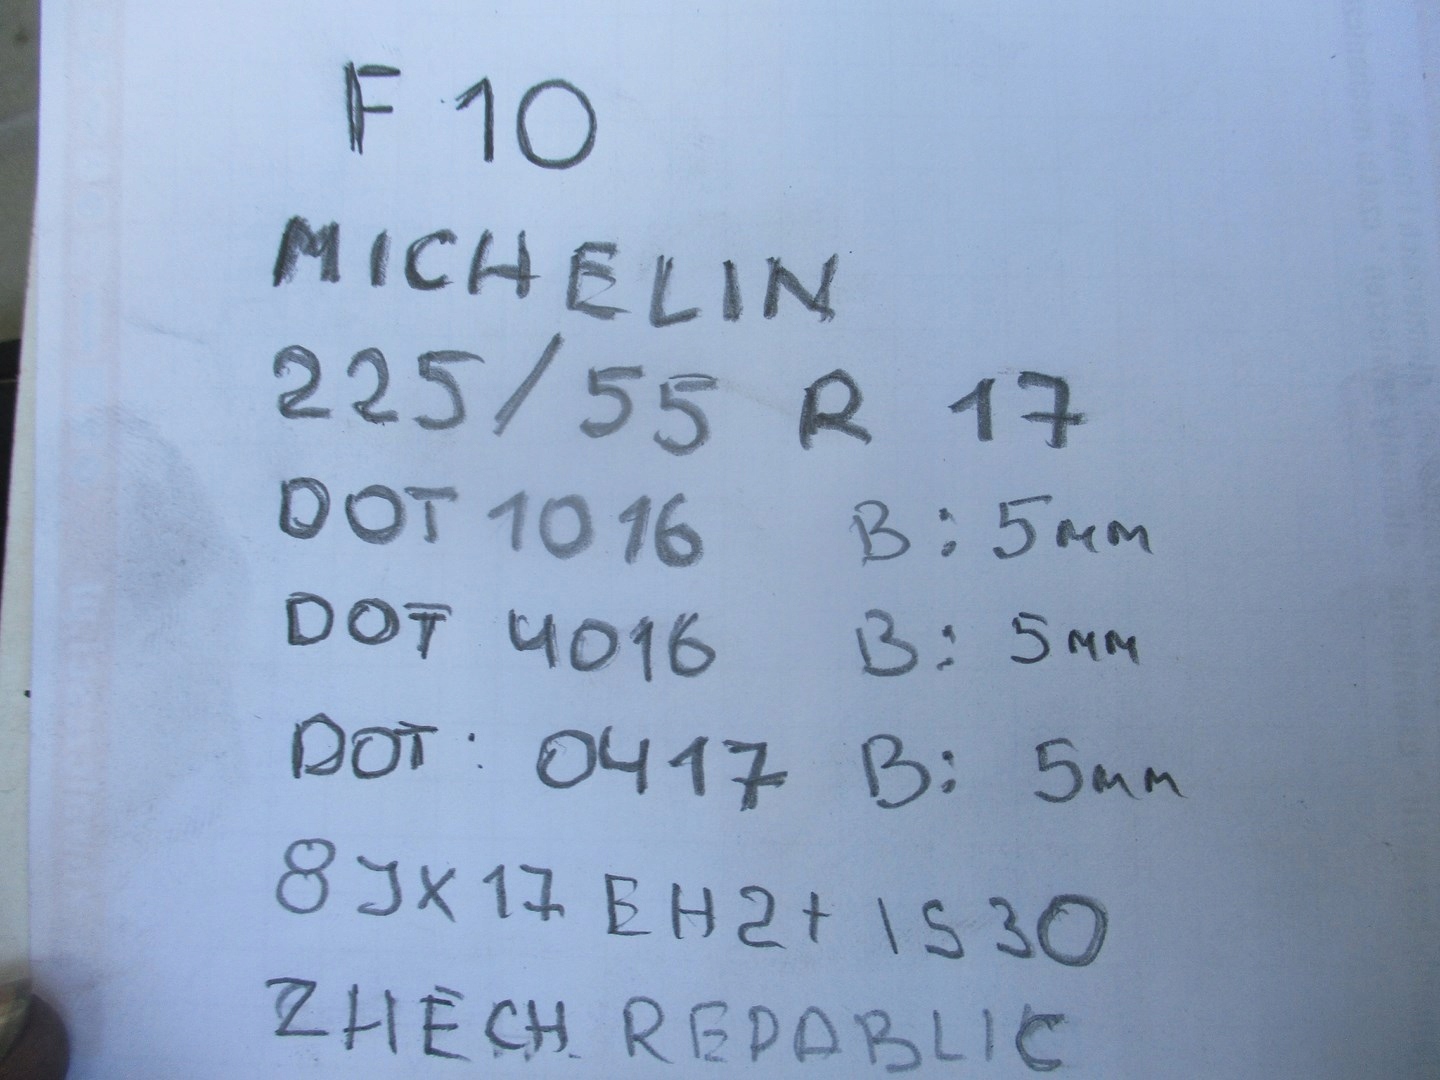 F 10
MICHELIN
225/55 R 17
DOT 1016 B: 5мм
DOT 4016 B: 5мм
DOT: 0417 B: 5мм
8JX17 EH2+ IS30
ZHECH REPABLIC